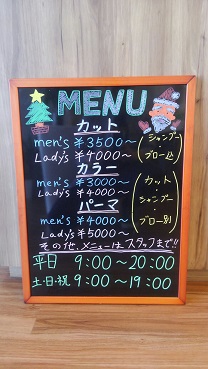 MENU
カット
men's ¥3500〜 (シャンプー
Lady's ¥4000〜 ブロー込)
カラー
men's ¥3000〜 (カット
Lady's ¥4000〜 シャンプー
パーマ
men's ¥4000〜 ブロー別)
Lady's ¥5000〜
その他、メニューはスタッフまで!!
平日 9:00〜20:00
土・日・祝 9:00〜19:00